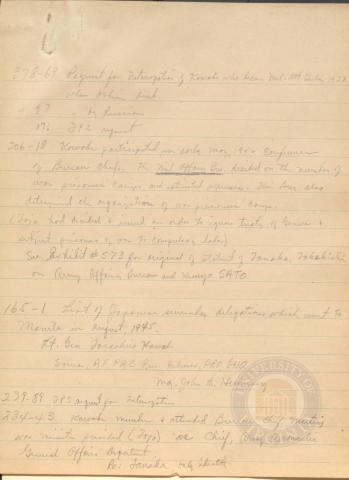 378-69 Request for Interrogation of Kawabe who became Mil. Att. Berlin 1938
when Oshima
97 - by Russians
176 242 request
206-18 Kawabe participated in early May 1942 Conference
of Bureau Chiefs. The Mil Affairs Bu. decided on the number of
war prisoners camps and. This Bur also
determined the organization of war prisoners' camps.
(Tojo had decided & issued an order to ignore treaty of Geneva &
subject prisoners of war to compulsory labor)
See Exhibit #573 for original of Statement of Tanaka, Takakichi
on Army Affairs Bureau and Kenryo SATO
165-1 List of Japanese surrender delegations which went to
Manila in August, 1945.
Lt. Gen Torashiro Kawabe
Source, AFPAC
Maj. John A.
239-89 IPS request for Interrogation
234-43. Kawabe member & attended Bureau Chiefs meeting
war minister presided (Tojo) as Chief,
General Affairs Department
Re: Tanaka
UNIVERSITY OF